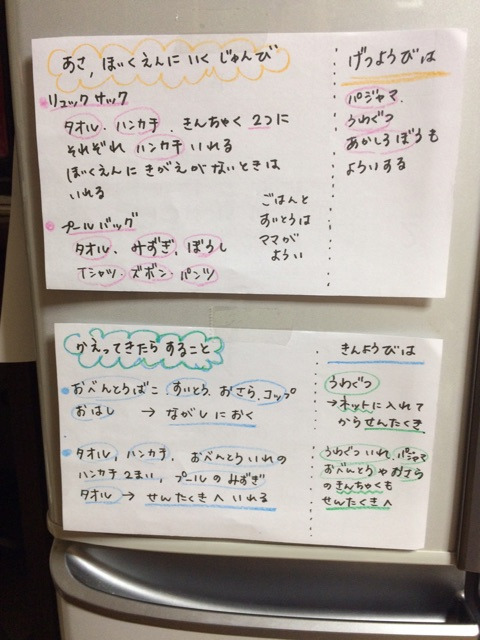 あさ、ほいくえんに いく じゅんび
●リュックサック
タオル・ハンカチ、きんちゃく 2つに
それぞれ ハンカチ いれる
ほいくえんに きがえが ないときは
いれる
●プールバッグ
タオル、みずぎ、ぼうし
Tシャツ・ズボン・パンツ
ごはんと
すいとうは
ママが
ようい
げつようびは
パジャマ、
うわぐつ
あかしろぼうも
よういする
かえってきたら すること
●おべんとうばこ、すいとう、おさら、コップ
おはし → ながしにおく
●タオル、ハンカチ、おべんとういれの
ハンカチ 2まい、プールの みずぎ
タオル → せんたくきへ いれる
きんようびは
うわぐつ
→ネットに入れて
から せんたくき
うわぐつ いれ、パジャマ
おべんとうやおさら
のきんちゃくも
せんたくきへ